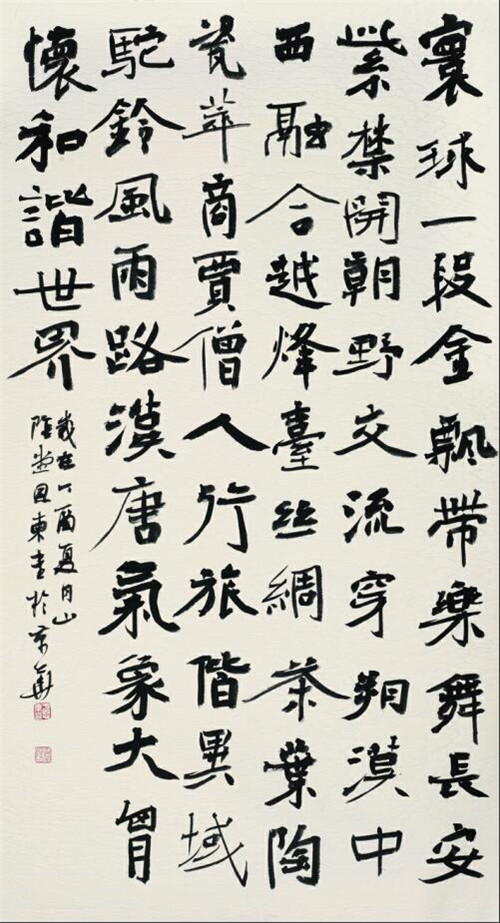 寰球一段金飄帶樂舞長安
紫禁開朝野交流穿朔漠中
西融合越烽臺絲綢茶葉陶
瓷萃商賈僧人行旅階異域
駝鈴風雨路漢唐氣象大胷
懷和諧世界
歲在丁酉夏月山
陰東書於京華